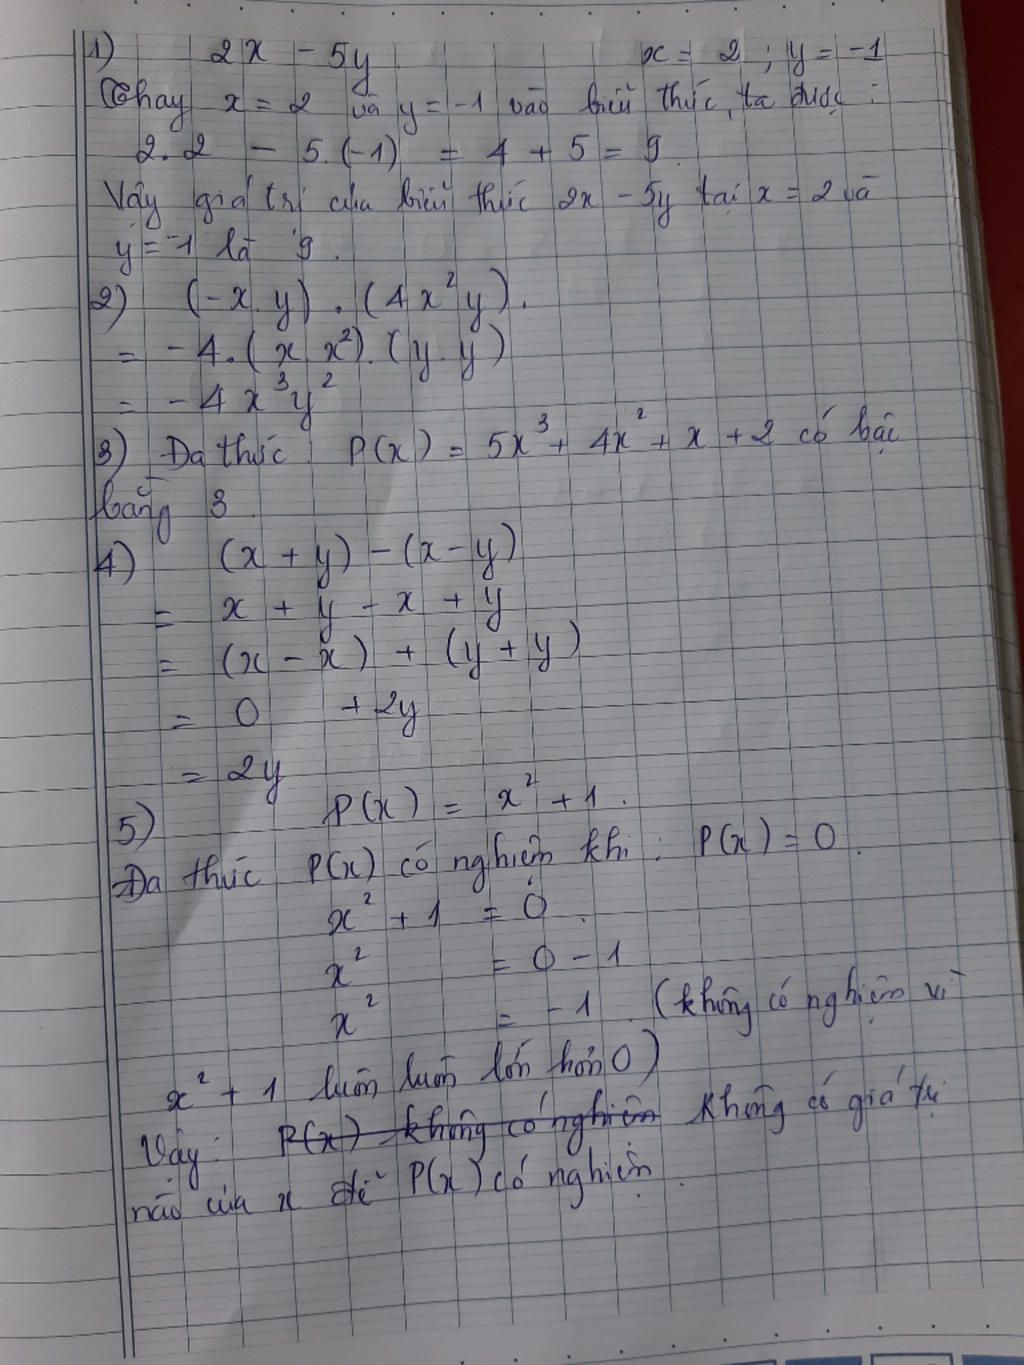 1) 2x - 5y x = 2 ; y = -1
Thay x = 2 và y = -1 vào biểu thức, ta được :
2. 2 - 5.(-1) = 4 + 5 = 9.
Vậy giá trị của biểu thức 2x - 5y tại x = 2 và
y = -1 là 9.
2) (-x.y) . (4x²y).
= -4.(x.x²).(y.y)
= -4x³y²
3) Đa thức P(x) = 5x³ + 4x² + x + 2 có bậc
bằng 3.
4) (x + y) - (x - y)
= x + y - x + y
= (x - x) + (y + y)
= 0 + 2y
= 2y
5) P(x) = x² + 1.
Đa thức P(x) có nghiệm khi : P(x) = 0.
x² + 1 = 0.
x² = 0 - 1
x² = -1. (không có nghiệm vì
x² + 1 luôn luôn lớn hơn 0)
Vậy: P(x) không có nghiệm không có giá trị
nào của x để P(x) có nghiệm.